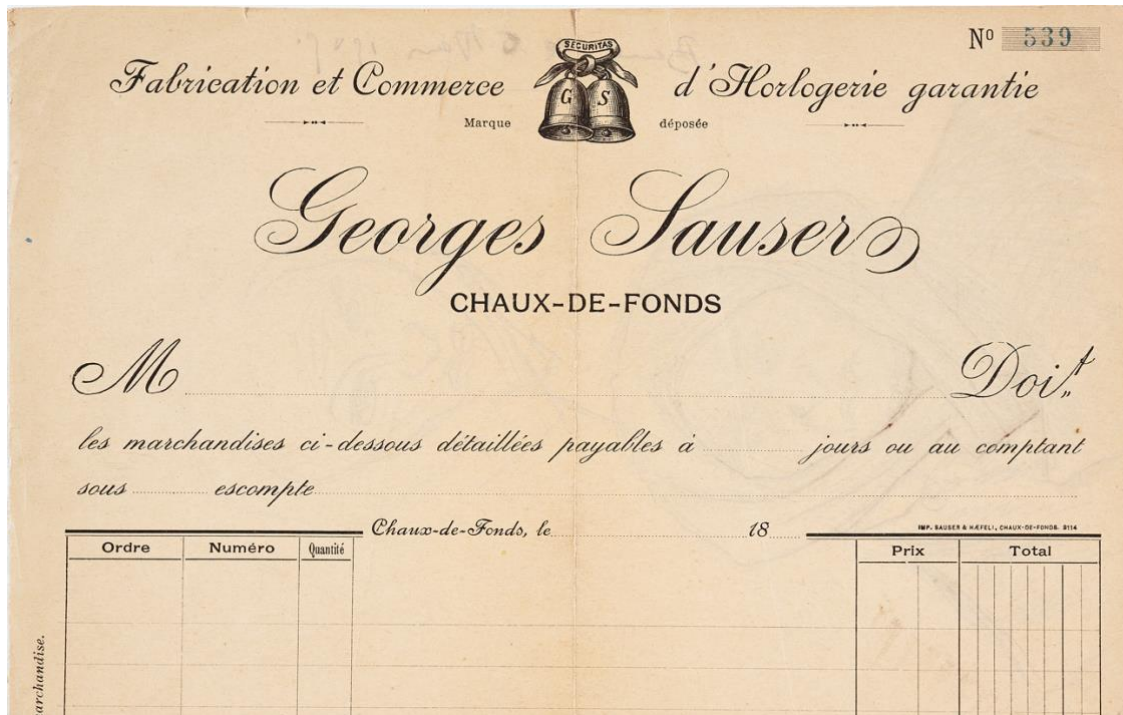 Nº 539
SECURITAS
Fabrication et Commerce G S d'Horlogerie garantie
Marque déposée
Georges Sauser
CHAUX-DE-FONDS
M Doit
les marchandises ci-dessous détaillées payables à jours ou au comptant
sous escompte
Chaux-de-Fonds, le 18
IMP. SAUSER & HÆFELI, CHAUX-DE-FONDS. 3114
Ordre Numéro Quantité Prix Total
archandise.